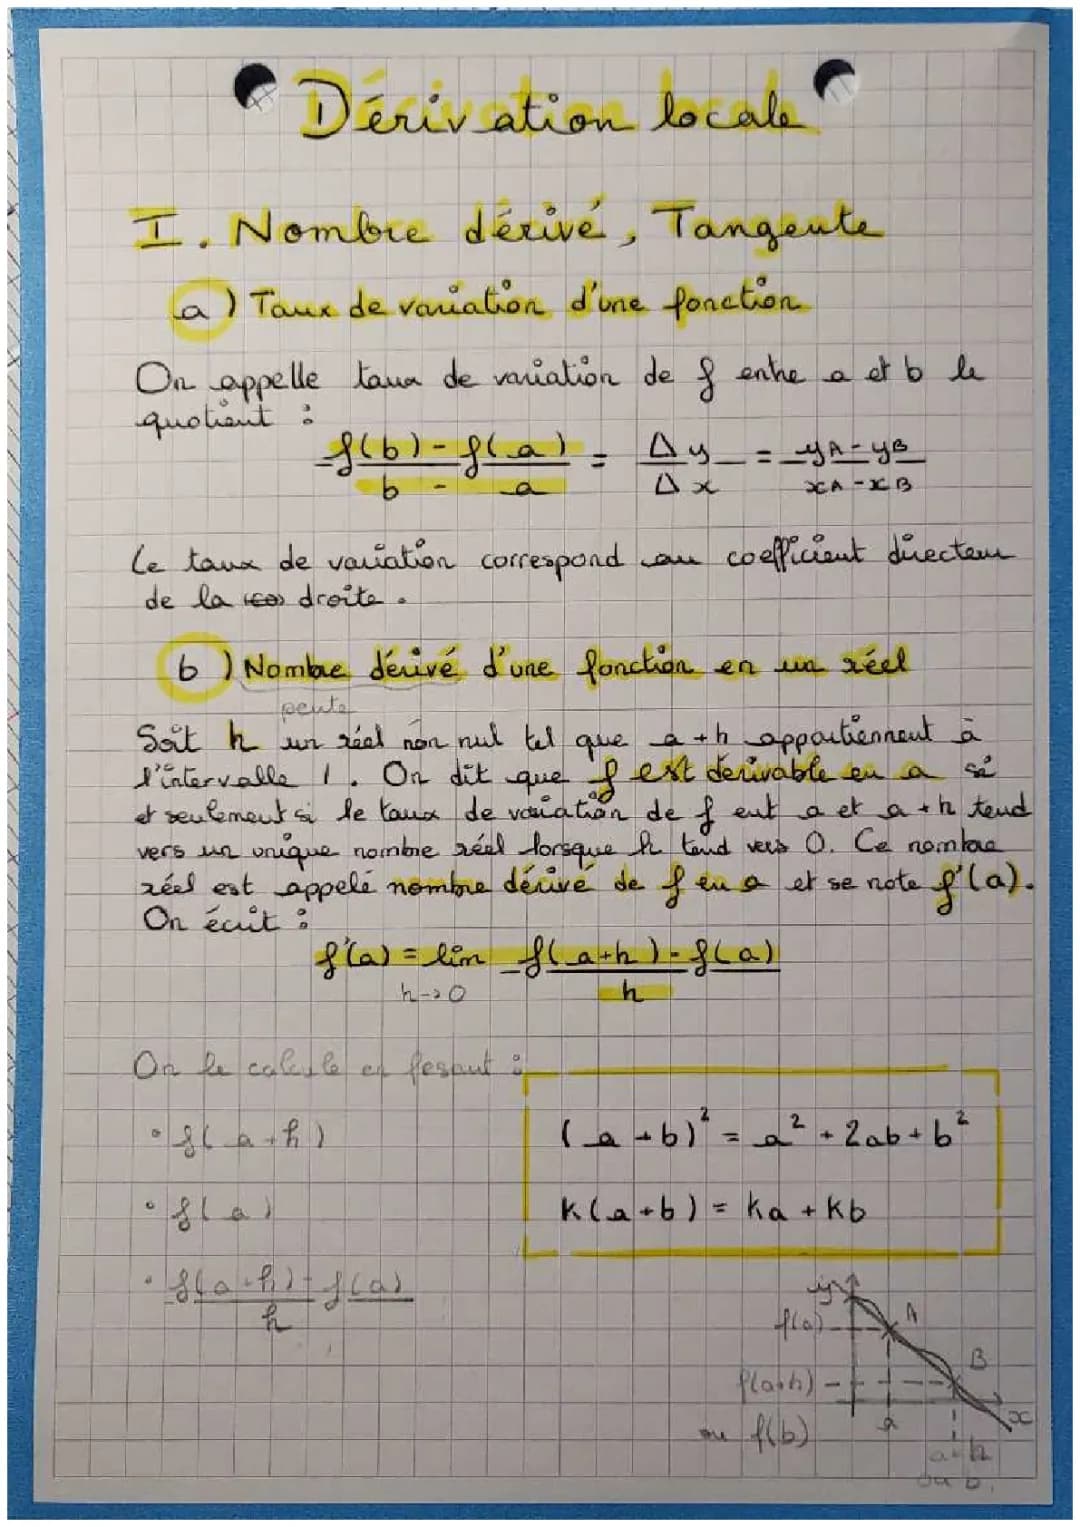 Dérivation locale
I. Nombre dérivé, Tangente
a) Taux de variation d'une fonction
On appelle taux de variation de f entre a et b le
quotient :
f(b) - f(a) / b - a = Δy / Δx = yA - yB / xA - xB
Le taux de variation correspond au coefficient directeur
de la droite.
b) Nombre dérivé d'une fonction en un réel
pente
Soit h un réel non nul tel que a+h appartiennent à
l'intervalle I. On dit que f est derivable en a si
et seulement si le taux de variation de f ent a et a+h tend
vers un unique nombre réel lorsque h tend vers 0. Ce nombre
réel est appelé nombre dérivé de f en a et se note f'(a).
On écrit :
f'(a) = lim f(a+h) - f(a) / h
h→0
On le calcule en fesant :
• f(a+h)
• f(a)
• f(a+h) - f(a) / h
(a+b)² = a² + 2ab + b²
k(a+b) = ka + kb
y
f(a)
A
B
f(a+h)
ou f(b)
a
x
a+h
ou b.